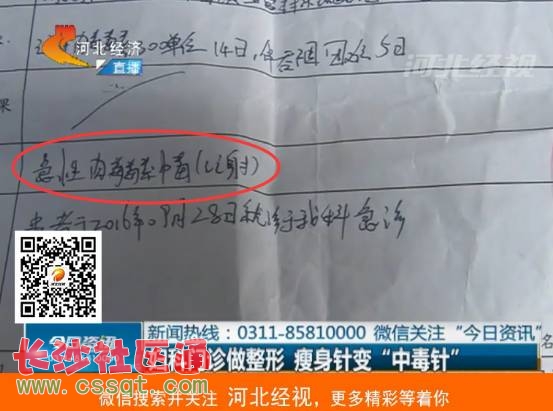 300单位 14日,
5日
河北经济
直播
河北经视
果
急性肉毒毒素中毒(注射)
患者于2016年9月28日就诊于我科急诊
新闻热线:0311-85810000 微信关注 “今日资讯”
诊做整形 瘦身针变“中毒针”
长沙社区通
www.cssqt.com
微信搜索并关注 河北经视,更多精彩等着你